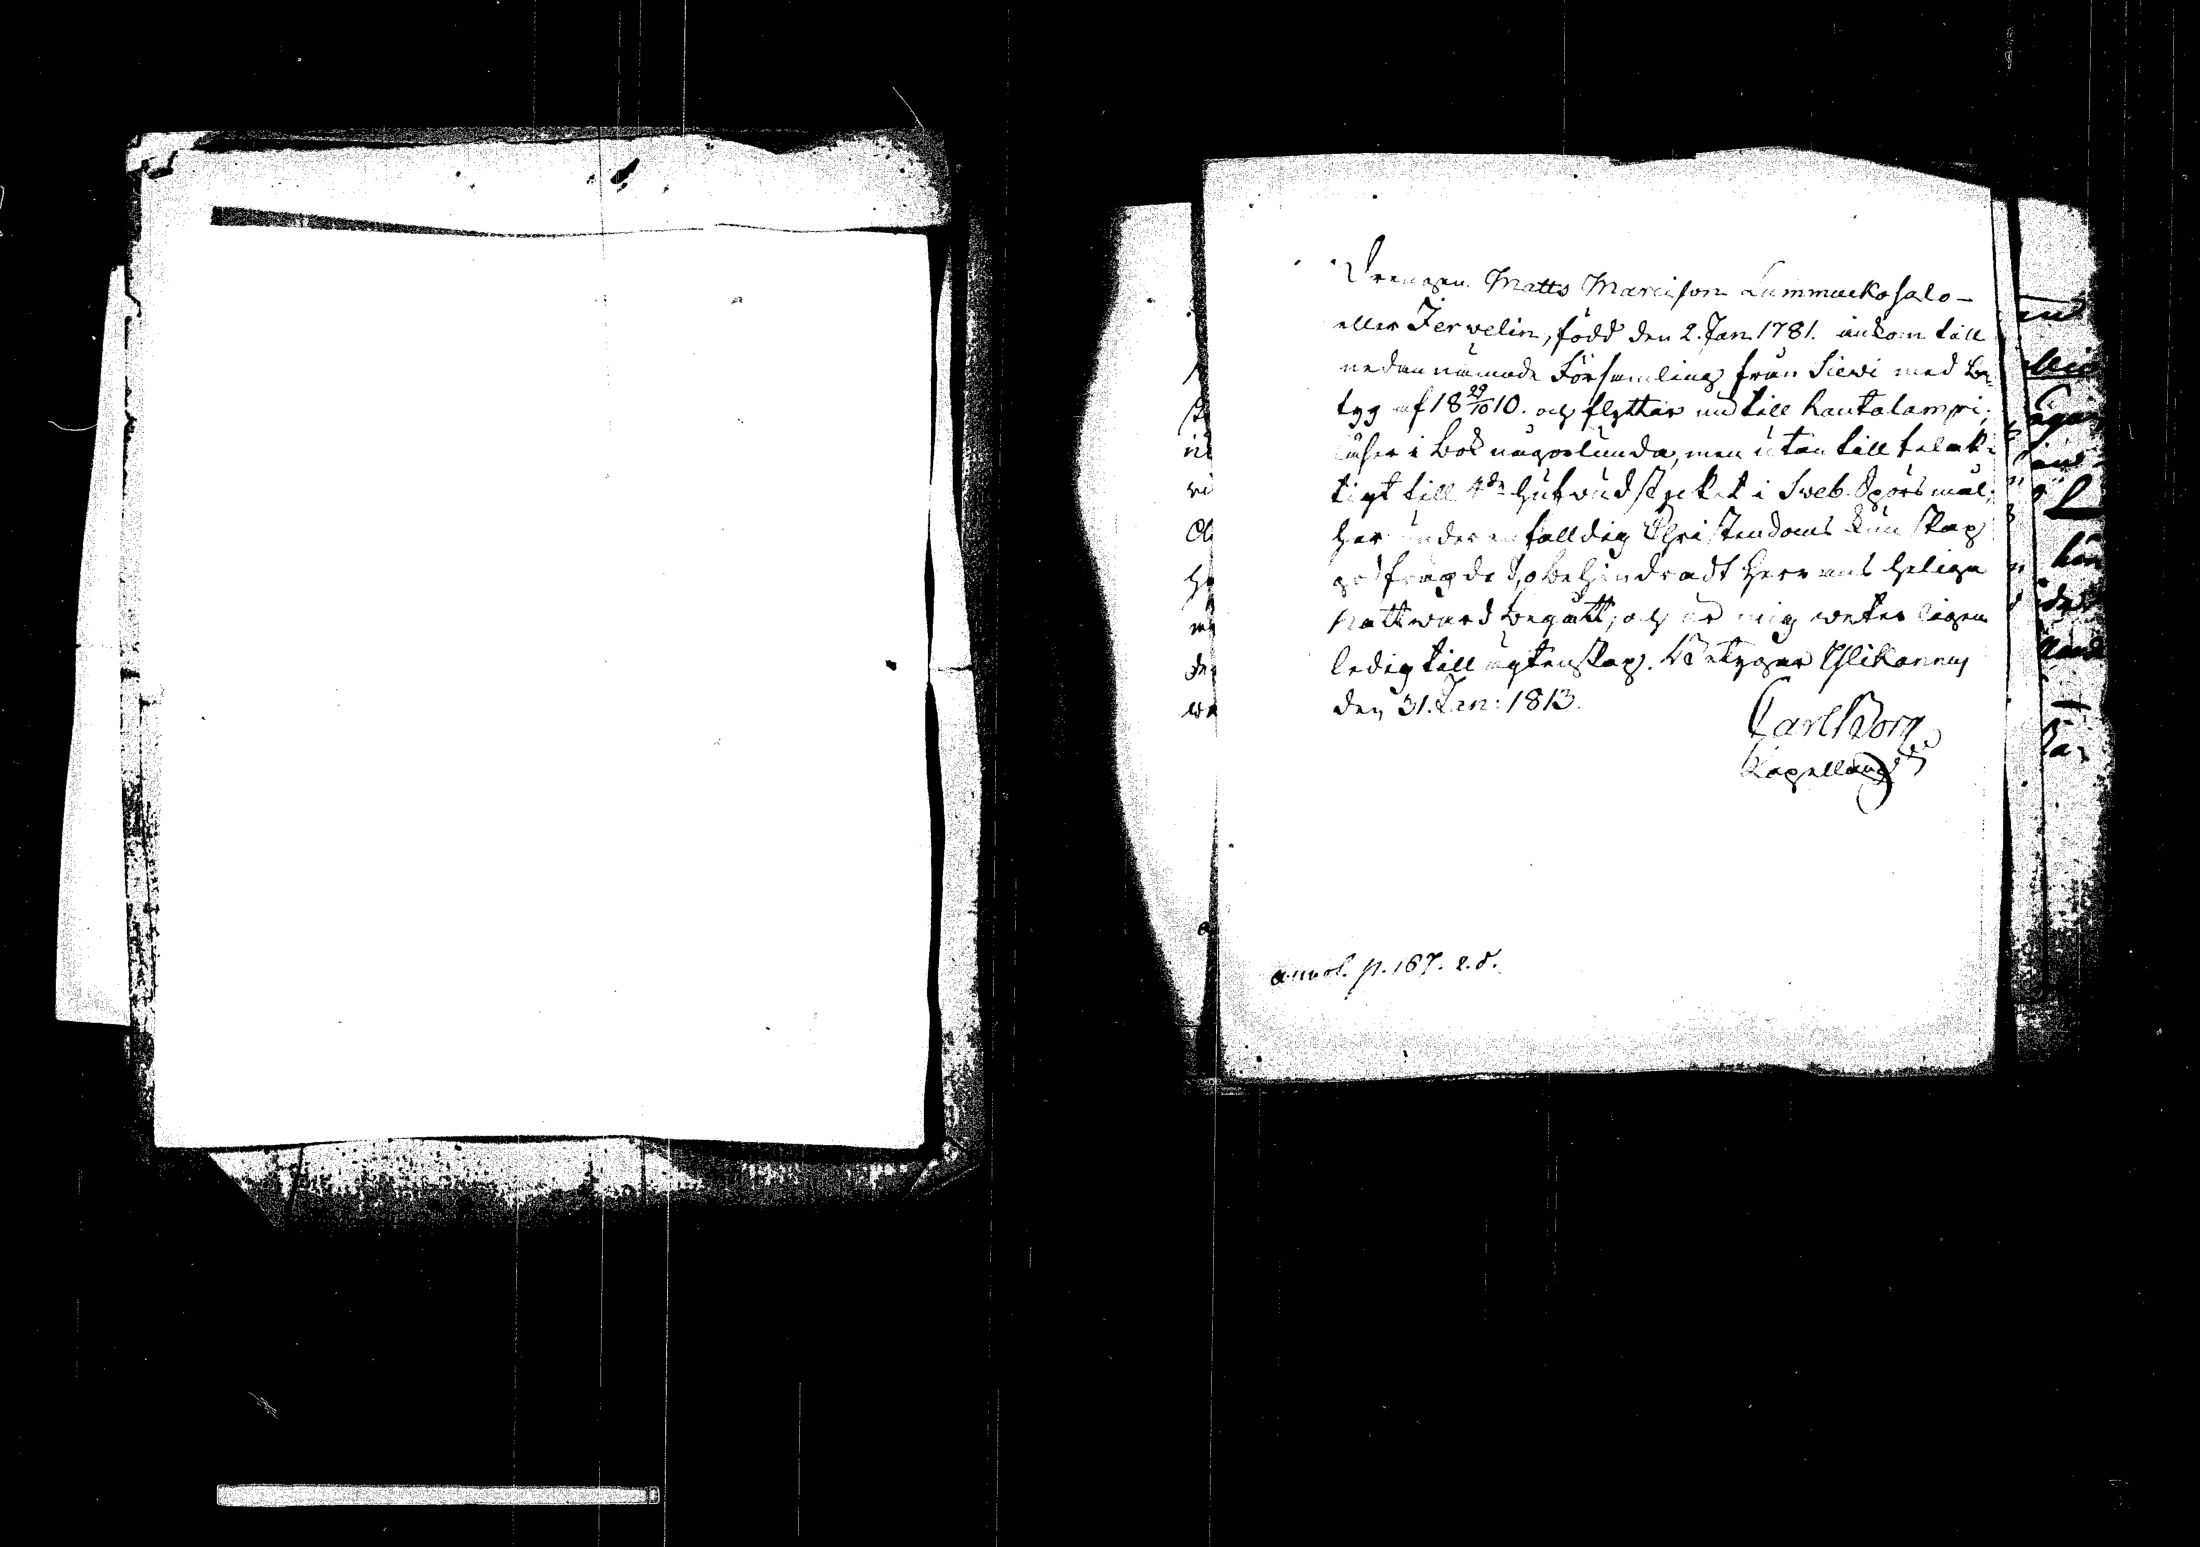 Drengen Matts Marcisson Lummuckosalo-
eller Jervelin, född den 2. Jan. 1781. ankom till
nedannämnde Församling från Siewi med Be-
tyg af 18 29/10 10. och flyttar nu till Rautalampi;
läser i Bok någorlunda, men utan till felak-
tigt till 4de hufwudstycket i Sweb. Spörsmål;
har under enfalldig Christendoms kunskap
obehindradt Herrans helige
Nattward begått, och är mig weterligen
ledig till ägtenskap. Betygar Ylikannus
den 31. Jan: 1813.
Carl Borg
Kapellan
annot. p. 167.